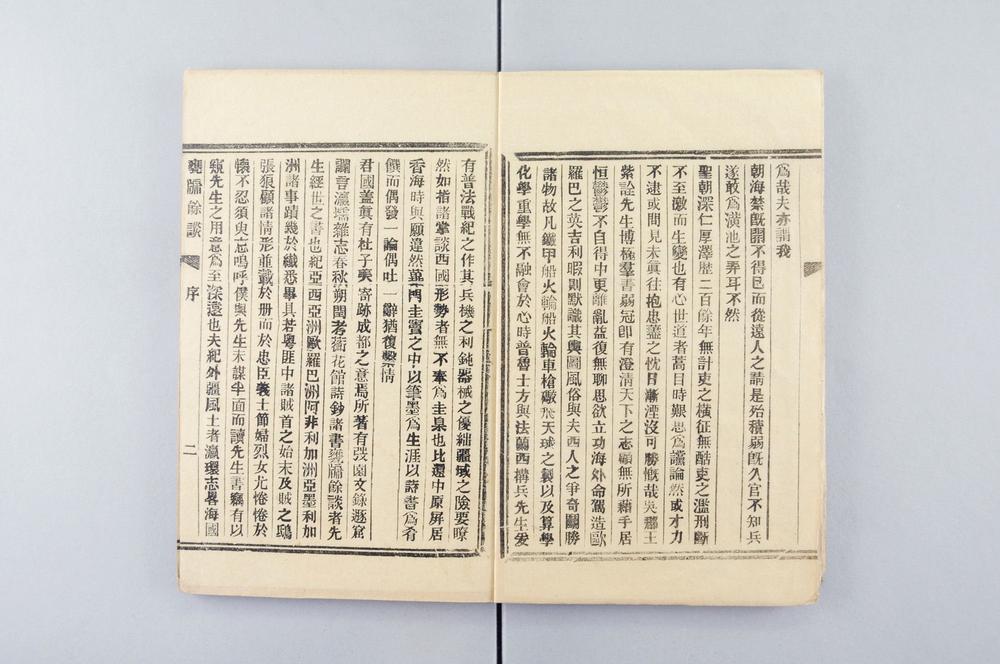 為哉夫亦謂我
朝海禁既開不得已而從遠人之請是殆積弱既久官不知兵
遂敢為潢池之弄耳不然
聖朝深仁厚澤歷二百餘年無計吏之橫征無酷吏之濫刑斷
不至激而生變也有心世道者蒿目時艱思為讜論然或才力
不逮或聞見未眞往抱忠藎之忱日漸湮沒可勝慨哉吳郡王
紫詮先生博極羣書弱冠即有澄清天下之志顧無所藉手居
恒鬱鬱不自得中更離亂益復無聊思欲立功海外命駕造歐
羅巴之英吉利暇則默識其輿圖風俗與夫西人之爭奇鬬勝
諸物故凡鐵甲船火輪船火輪車槍礮飛天球之製以及算學
化學重學無不融會於心時普魯士方與法蘭西構兵先生爰
有普法戰紀之作其兵機之利鈍器械之優絀疆域之險要瞭
然如指諸掌談西國形勢者無不奉為圭臬也比還中原屏居
香海時與願違然蓽門圭竇之中以筆墨為生涯以詩書為肴
饌而偶發一論偶吐一辭猶復繫情
君國蓋眞有杜子美寄跡成都之意焉所著有弢園文錄遯窟
讕言瀛壖雜志春秋朔閏考蘅花館詩鈔諸書甕牖餘談者先
生經世之書也紀亞西亞洲歐羅巴洲阿非利加洲亞墨利加
洲諸事蹟幾於纖悉畢具若粵匪中諸賊首之始末及賊之鴟
張狼顧諸情形並載於册而於忠臣義士節婦烈女尤惓惓於
懷不忍須臾忘嗚呼僕與先生未謀半面而讀先生書竊有以
窺先生之用意為至深遠也夫紀外疆風土者瀛環志畧海國
甕牖餘談
序
二